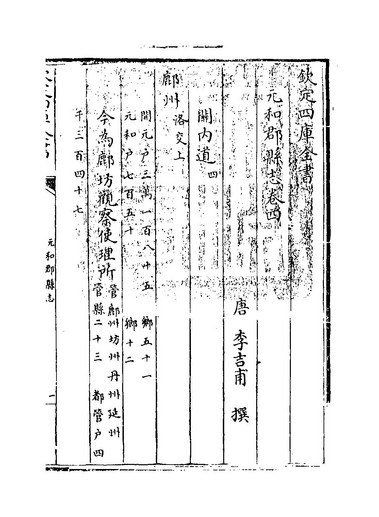 欽定四庫全書
元和郡縣志卷四
唐 李吉甫 撰
關內道四
鄜州 洛交上
開元户三萬一百八十五 鄉五十一
元和户七百五十 鄉十二
今為鄜坊觀察使理所管鄜州坊州丹州延州
管縣二十三 都管户四
千三百四十七
元和郡縣志
一